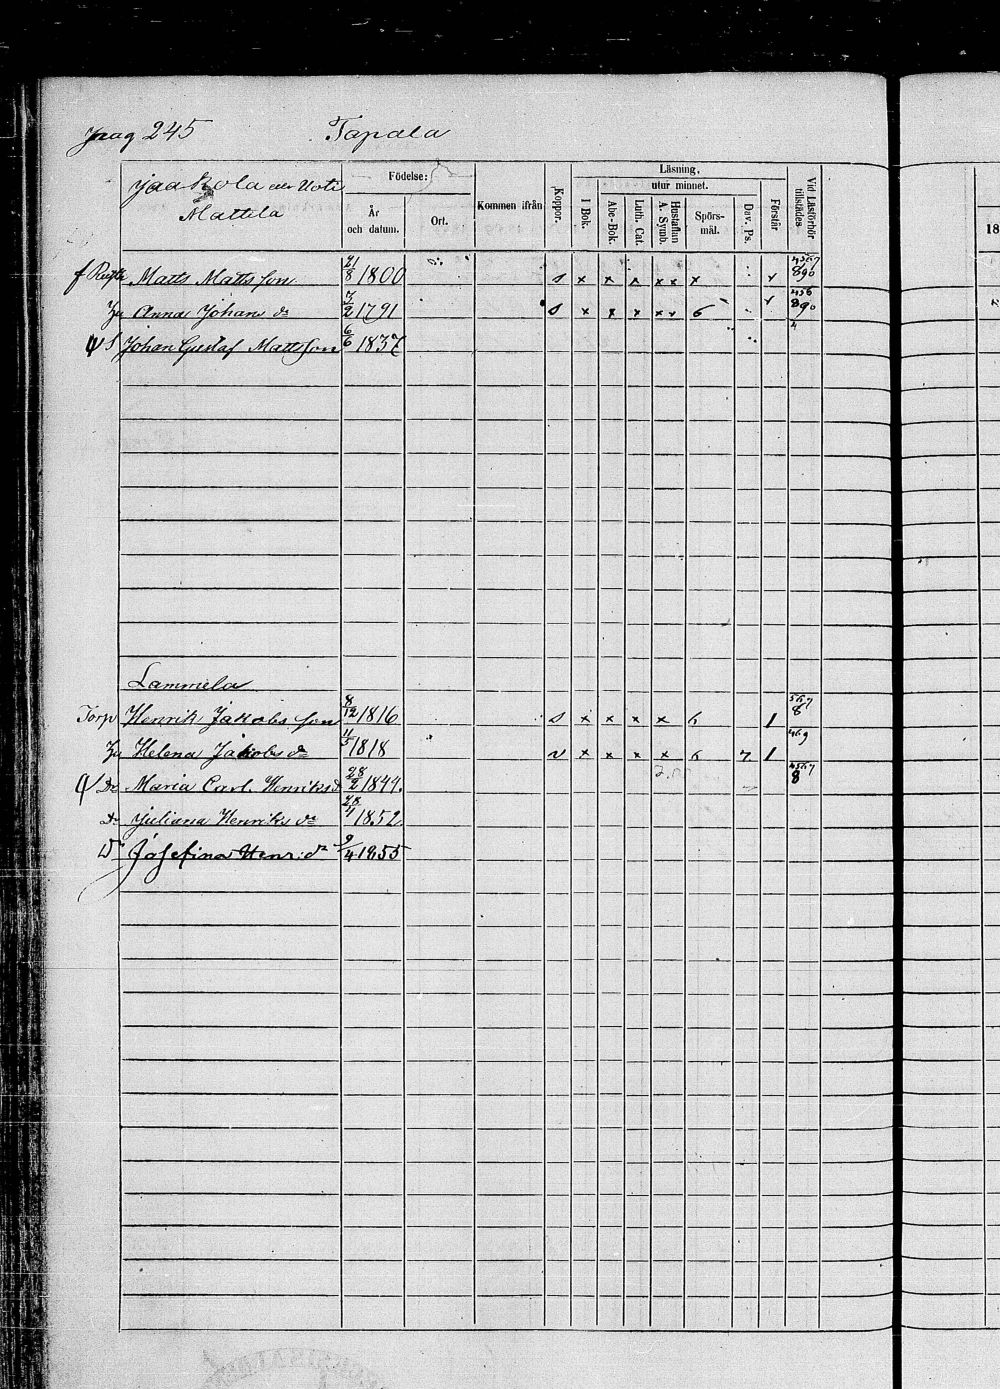 pag 245 Tapala
Jaakola eller Uoti
Mattila
Födelse:
År och datum.
Ort.
Kommen ifrån
Koppor.
Läsning.
I Bok.
utur minnet.
Abc-Bok.
Luth. Cat.
Hustaflan A. Symb.
Spörsmål.
Dav. Ps.
Förstår
Vid Läsförhör tillstädes
18
Matts Mattsson 21/8 1800 s x x x x x x 4567 890
Hu Anna Johans dr 7/2 1791 s x x x x x 6 456 890
S Johan Gustaf Mattsson 6/6 1837 4
Lammela
Torp Henrik Jakobsson 8/12 1816 s x x x x 6 1 567 8
Hu Helena Jakobs dr 11/5 1818 v x x x x 6 7 1 469
Dr Maria Carl. Henriksd 28/2 1849. 4567 8
Dr Juliana Henriks dr 28/11 1852
Dr Josefina Henr: dr 9/4 1855